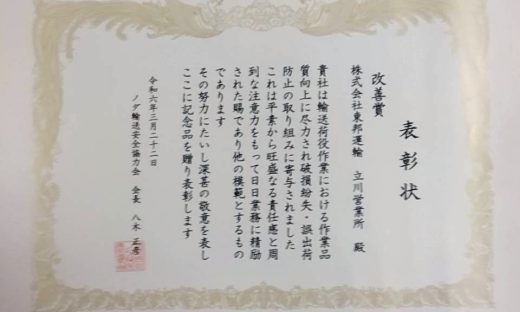 表彰状
改善賞
株式会社東邦運輸 立川営業所 殿
貴社は輸送荷役作業における作業品
質向上に尽力され破損紛失・誤出荷
防止の取り組みに寄与されました
これは平素から旺盛なる責任感と周
到な注意力をもって日日業務に精励
された賜であり他の模範とするもの
であります
その努力にたいし深甚の敬意を表し
ここに記念品を贈り表彰します
令和六年三月二十二日
ノダ輸送安全協力会 会長 八木 正彦